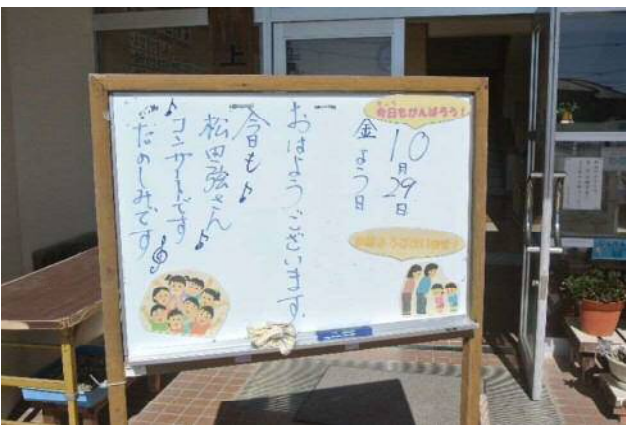 今日もがんばろう!
10月29日
金よう日
おはようございます。
今日も♪
松田強さん♪
♪コンサートです
たのしみです
上